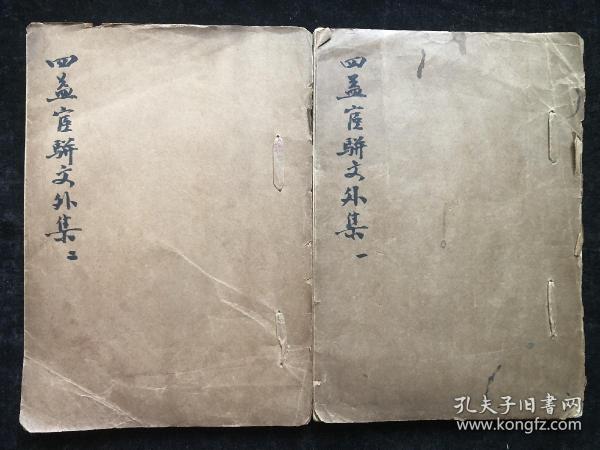 四益宧駢文外集 一
四益宧駢文外集 二
孔夫子旧書网
www.kongfz.com